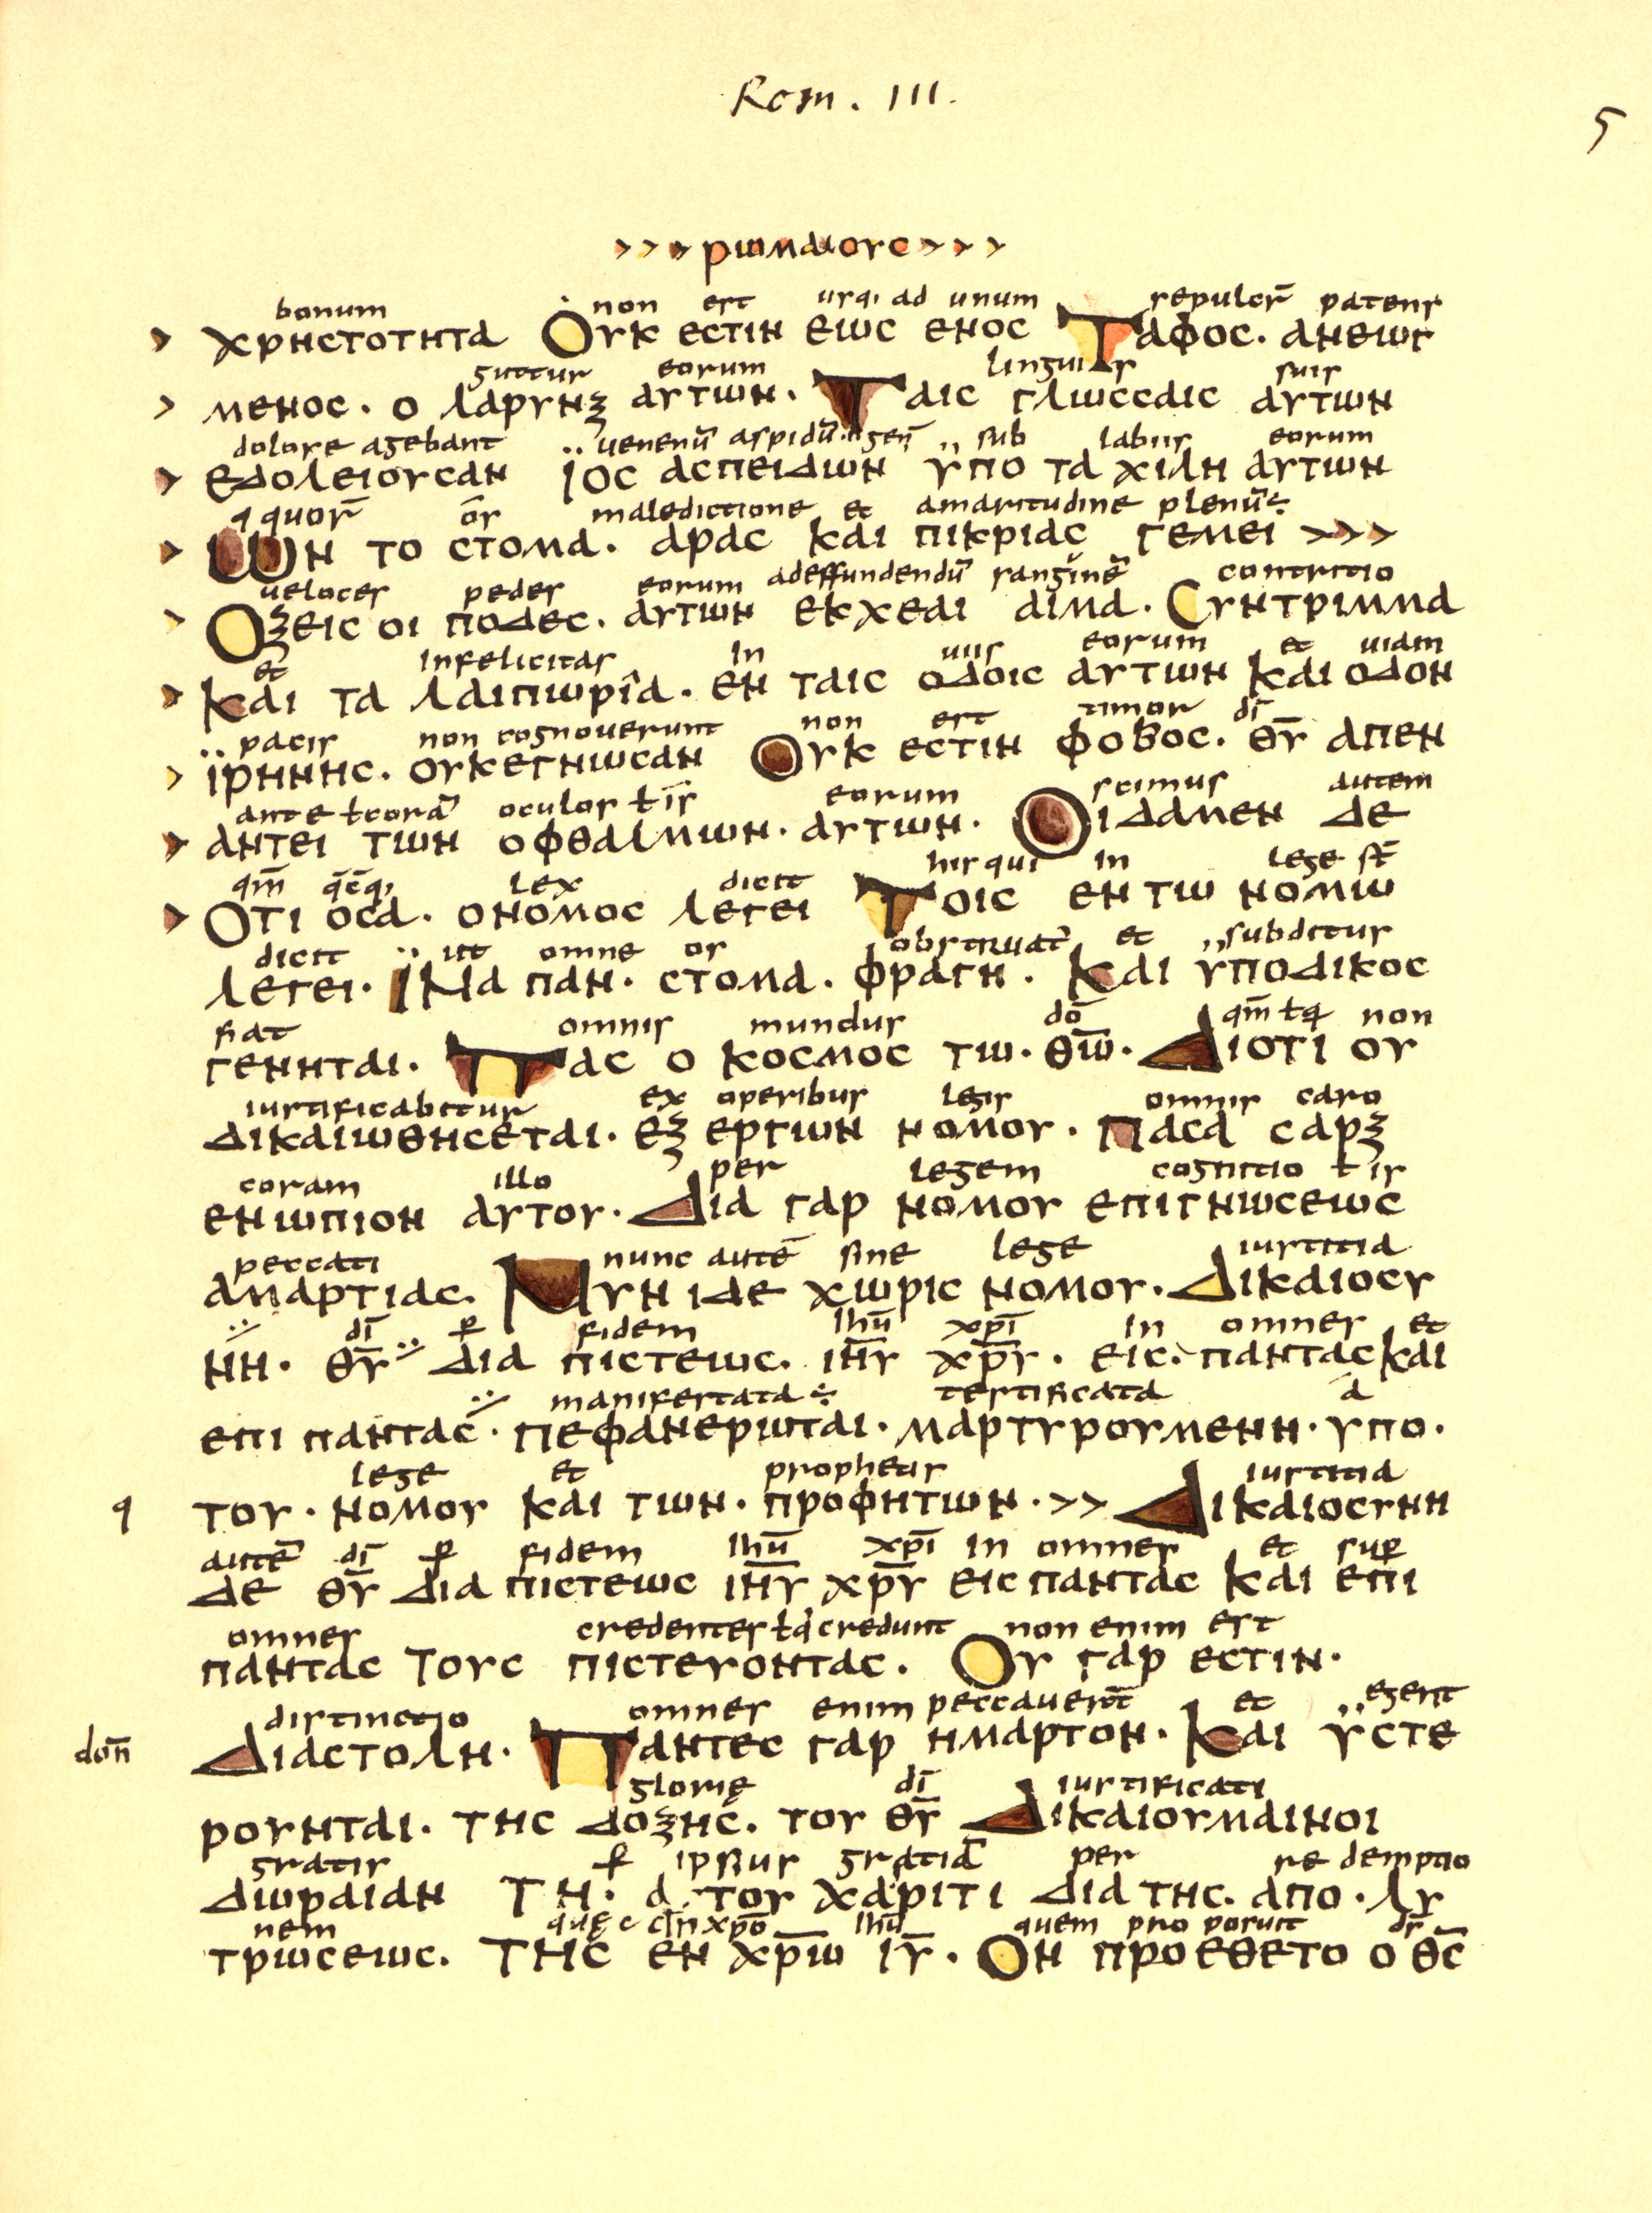 Rom. III.
5
> > > ΡΩΜΑΙΟΥC > > >
bonum non est usq; ad unum sepulcr̄ patens
> ΧΡΗCΤΟΤΗΤΑ ΟΥΚ ΕCΤΙΝ ΕΩC ΕΝΟC ΤΑΦΟC· ΑΝΕΩΓ
guttur eorum linguis suis
> ΜΕΝΟC· Ο ΛΑΡΥΝΞ ΑΥΤΩΝ· ΤΑΙC ΓΛΩCCΑΙC ΑΥΤΩΝ
dolose agebant uenenū aspidū gen̄ sub labiis eorum
> ΕΔΟΛΕΙΟΥCΑΝ ΙΟC ΑCΠΕΙΔΩΝ ΥΠΟ ΤΑ ΧΙΛΗ ΑΥΤΩΝ
quor̄ ōs maledictione et amaritudine plenū÷
> ΩΝ ΤΟ CΤΟΜΑ· ΑΡΑC ΚΑΙ ΠΙΚΡΙΑC ΓΕΜΕΙ >>>
ueloces pedes eorum adeffundendū sanginē contritio
> ΟΞΕΙC ΟΙ ΠΟΔΕC· ΑΥΤΩΝ ΕΚΧΕΑΙ ΑΙΜΑ· CΥΝΤΡΙΜΜΑ
et infelicitas in uiis eorum et uiam
> ΚΑΙ ΤΑ ΛΑΙΠΩΡΙΑ· ΕΝ ΤΑΙC ΟΔΟΙC ΑΥΤΩΝ ΚΑΙ ΟΔΟΝ
pacis non cognouerunt non est timor dī
> ΙΡΗΝΗC· ΟΥΚΕΓΝΩCΑΝ ΟΥΚ ΕCΤΙΝ ΦΟΒΟC· Θ̄Ῡ ΑΠΕΝ
ante ł corā oculos ł is eorum scimus autem
> ΑΝΤΕΙ ΤΩΝ ΟΦΘΑΛΜΩΝ· ΑΥΤΩΝ· ΟΙΔΑΜΕΝ ΔΕ
qm̄ q̄cq; lex dicit his qui in lege st̄
> ΟΤΙ ΟCΑ· ΟΝΟΜΟC ΛΕΓΕΙ ΤΟΙC ΕΝ ΤΩ ΝΟΜΩ
dicit ut omne os obstruat̄ et subditur
ΛΕΓΕΙ· ΙΝΑ ΠΑΝ· CΤΟΜΑ· ΦΡΑΓΗ· ΚΑΙ ΥΠΟΔΙΚΟC
fiat omnis mundus dō qm̄ ł q non
ΓΕΝΗΤΑΙ· ΠΑC Ο ΚΟCΜΟC ΤΩ· Θ̄Ω̄· ΔΙΟΤΙ ΟΥ
iustificabitur ex operibus legis omnis caro
ΔΙΚΑΙΩΘΗCΕΤΑΙ· ΕΞ ΕΡΓΩΝ ΝΟΜΟΥ· ΠΑCΑ CΑΡΞ
coram illo per legem cognitio ł is
ΕΝΩΠΙΟΝ ΑΥΤΟΥ· ΔΙΑ ΓΑΡ ΝΟΜΟΥ ΕΠΙΓΝΩCΕΩC
peccati nunc autē sine lege iustitia
ΑΜΑΡΤΙΑC· ΝΥΝ ΙΔΕ ΧΩΡΙC ΝΟΜΟΥ· ΔΙΚΑΙΟCΥ
dī ꝑ fidem ihū xp̄i in omnes et
ΝΗ· Θ̄Ῡ ΔΙΑ ΠΙCΤΕΩC· ΙΗ̄Υ ΧΡ̄Υ· ΕΙC· ΠΑΝΤΑC ΚΑΙ
manifestata ÷ testificata a
ΕΠΙ ΠΑΝΤΑC· ΠΕΦΑΝΕΡΩΤΑΙ· ΜΑΡΤΥΡΟΥΜΕΝΗ· ΥΠΟ·
lege et prophetis iustitia
q ΤΟΥ· ΝΟΜΟΥ ΚΑΙ ΤΩΝ· ΠΡΟΦΗΤΩΝ· >> ΔΙΚΑΙΟCΥΝΗ
autē dī ꝑ fidem ihū xp̄i in omnes et suꝑ
ΔΕ Θ̄Ῡ ΔΙΑ ΠΙCΤΕΩC ΙΗ̄Υ ΧΡ̄Υ ΕΙC ΠΑΝΤΑC ΚΑΙ ΕΠΙ
omnes credentes ł q credunt non enim est
ΠΑΝΤΑC ΤΟΥC ΠΙCΤΕΥΟΝΤΑC· ΟΥ ΓΑΡ ΕCΤΙΝ·
distinctio omnes enim peccauert̄ et egent
don̄ ΔΙΑCΤΟΛΗ· ΠΑΝΤΕC ΓΑΡ ΗΜΑΡΤΟΝ· ΚΑΙ ΥCΤΕ
glorię dī iustificati
ΡΟΥΝΤΑΙ· ΤΗC ΔΟΞΗC· ΤΟΥ Θ̄Ῡ ΔΙΚΑΙΟΥΜΑΙΝΟΙ
gratis ꝑ ipsius gratiā per redemptio
ΔΩΡΑΙΑΝ ΤΗ· Α ΤΟΥ ΧΑΡΙΤΙ ΔΙΑ ΤΗC· ΑΠΟ· ΛΥ
nem quę in xp̄o ihū quem pro posuit ds̄
ΤΡΩCΕΩC· ΤΗC ΕΝ ΧΡ̄Ω ΙῩ· ΟΝ ΠΡΟΕΘΕΤΟ Ο Θ̄C̄